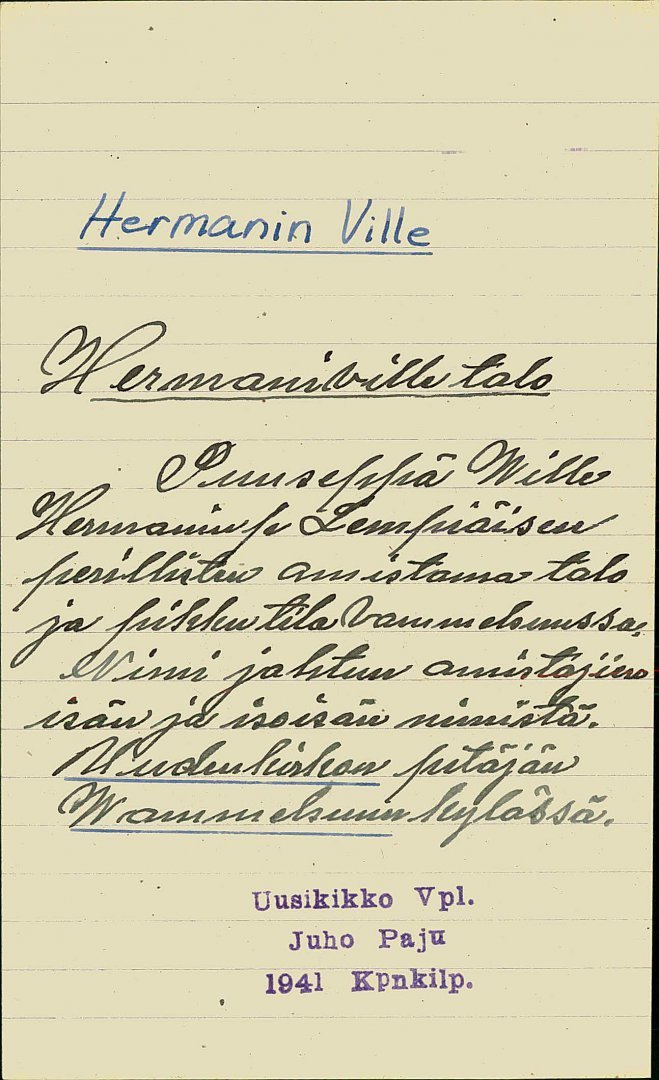 Hermanin Ville
Hermaniville talo
Puuseppä Wille
Hermaninp Lempiäisen
perillisten omistama talo
ja pikku tila Vammelsuussa.
Nimi johtuu omistajien
isän ja isoisän nimistä.
Uudenkirkon pitäjän
Wammelsuun kylässä.
Uusikikko Vpl.
Juho Paju
1941 Kpnkilp.